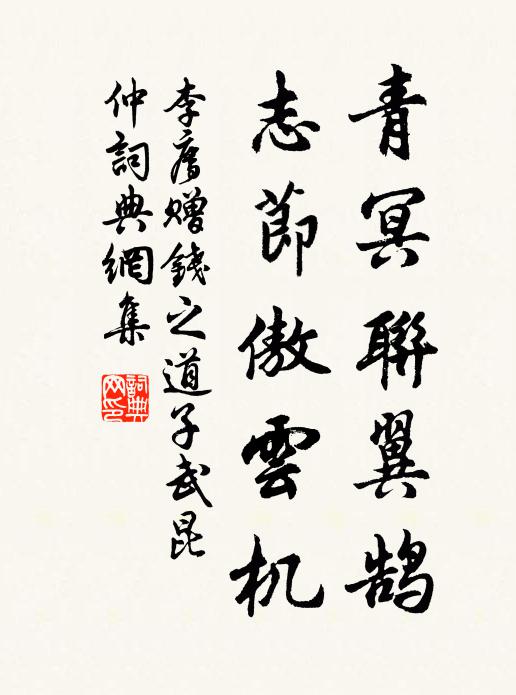 青冥聯翼鹄
志節傲雲机
李廌赠錢之道子武昆
仲詞典網集
詞典
网印